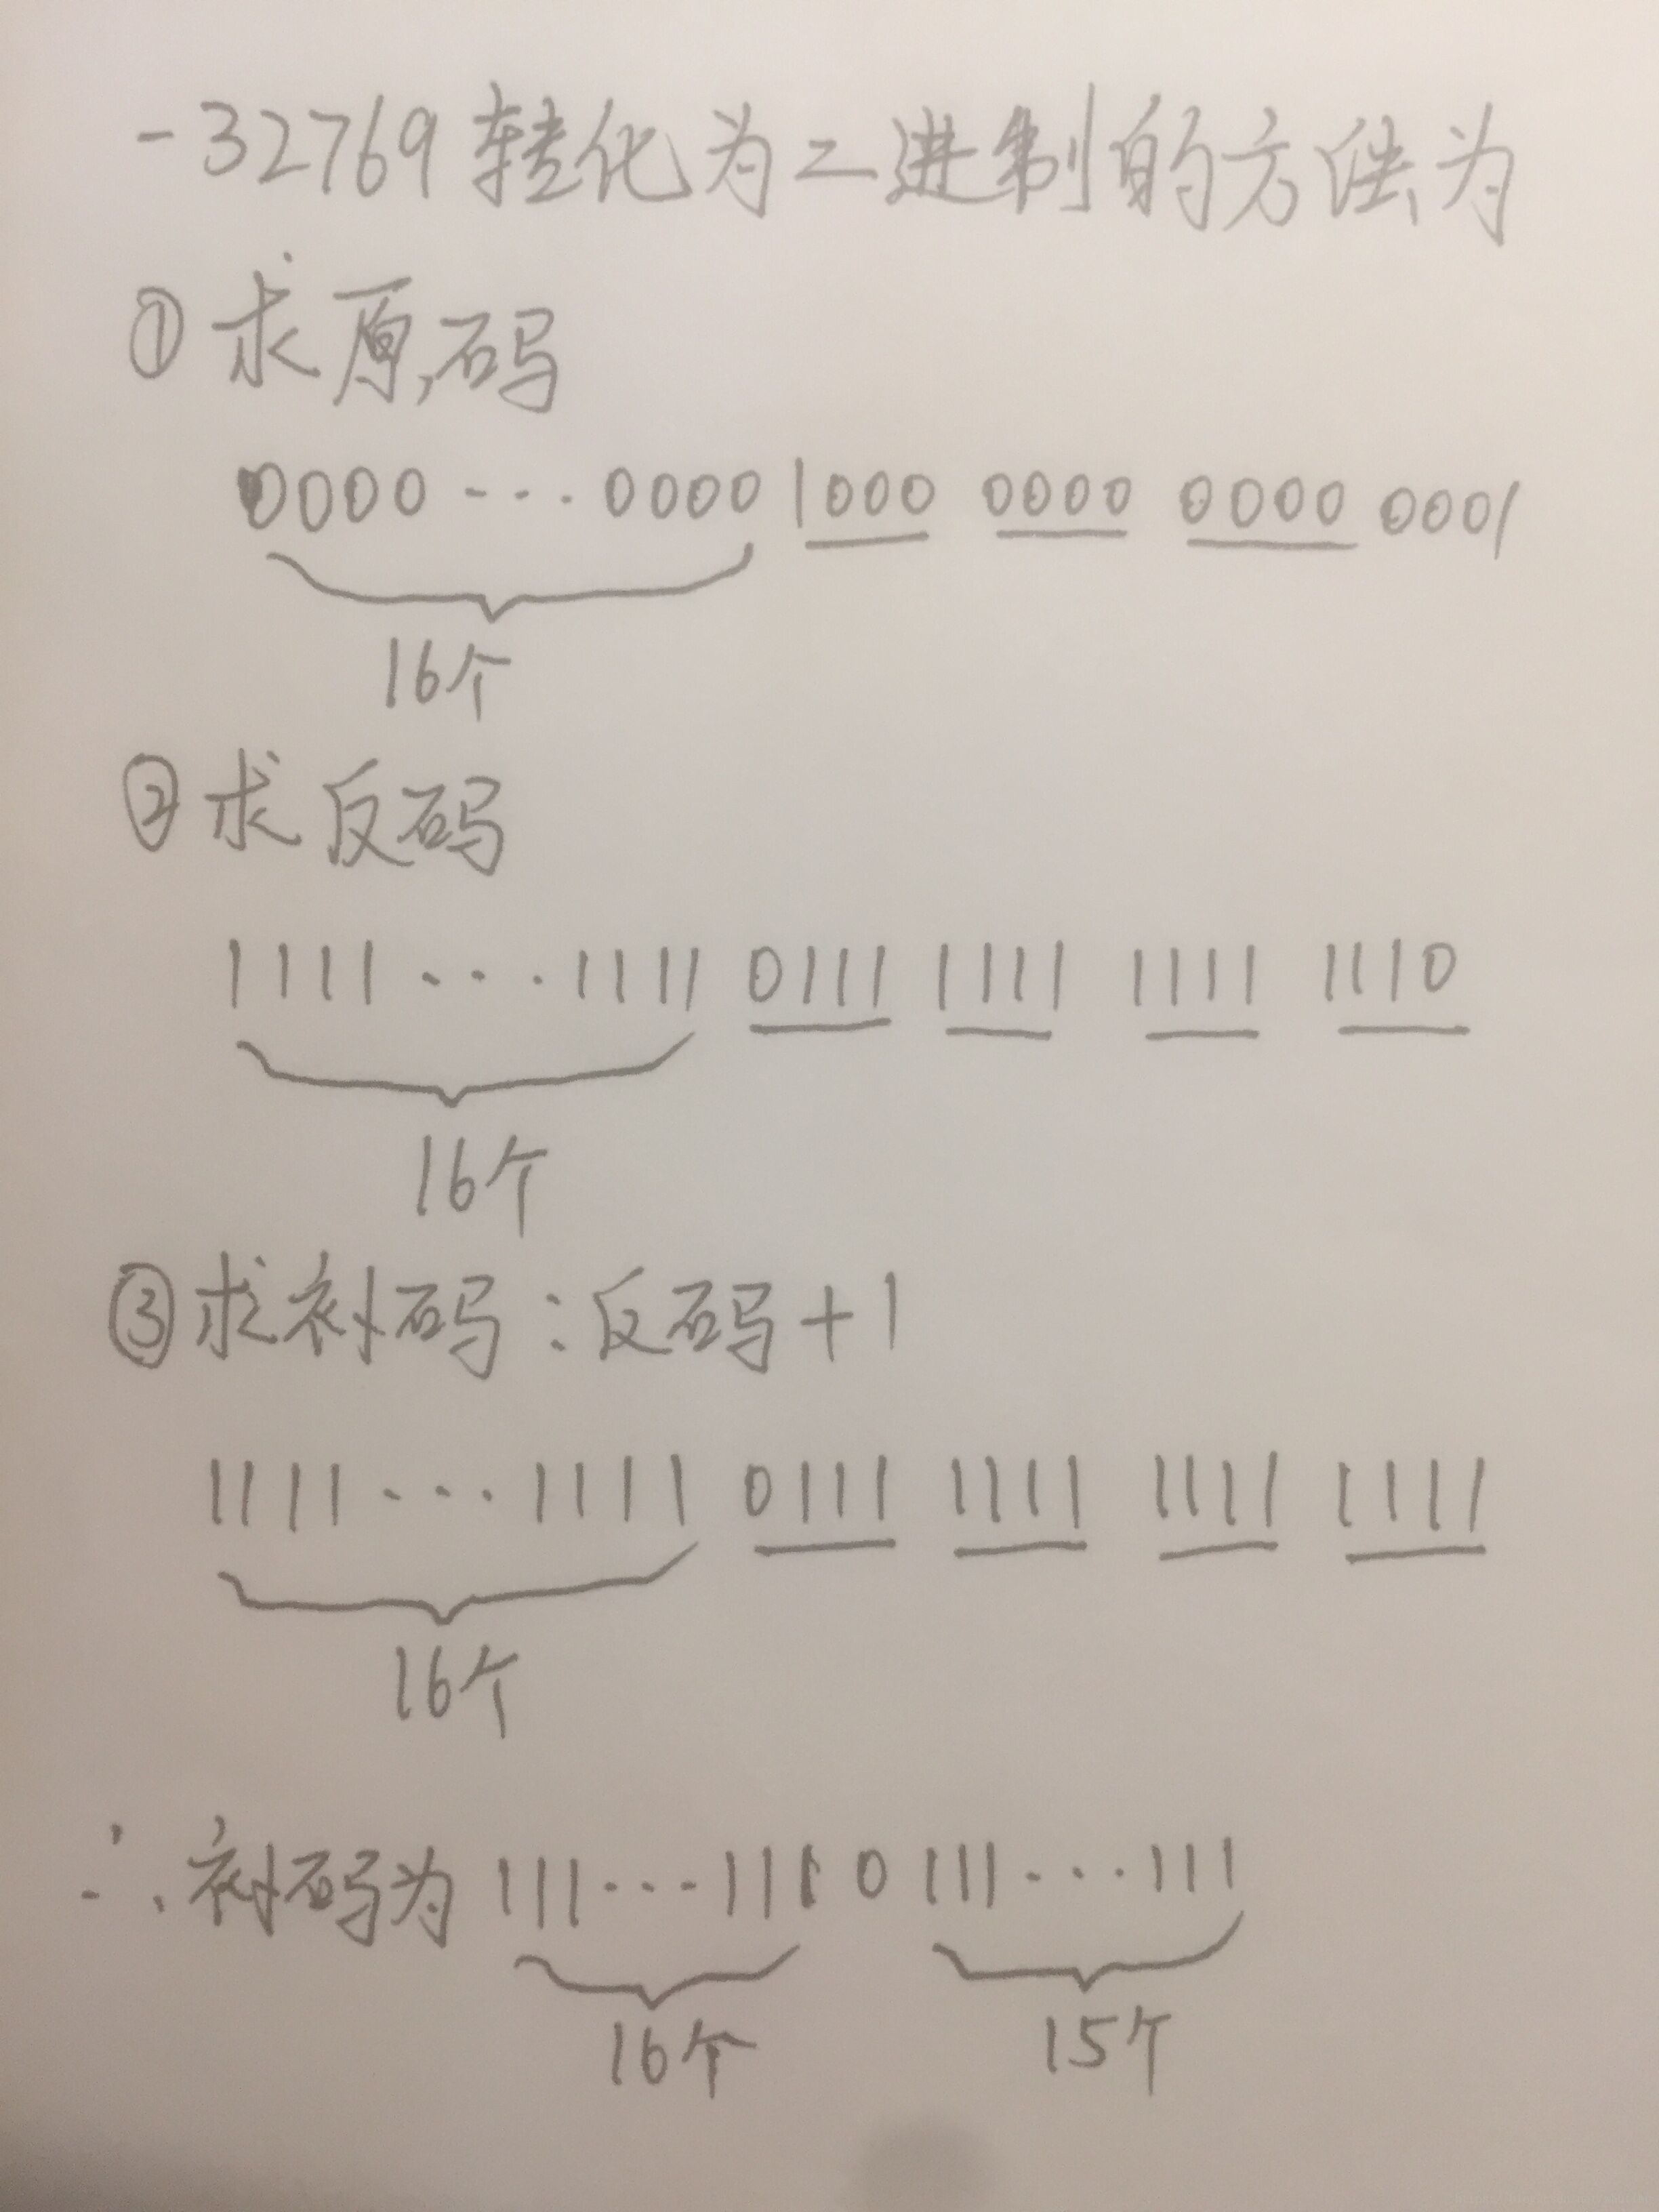 -32769转化为二进制的方法为
①求原码
0000···0000 1000 0000 0000 0001
16个
②求反码
1111···1111 0111 1111 1111 1110
16个
③求补码:反码+1
1111···1111 0111 1111 1111 1111
16个
∴补码为 111···111 0 111···111
16个 15个